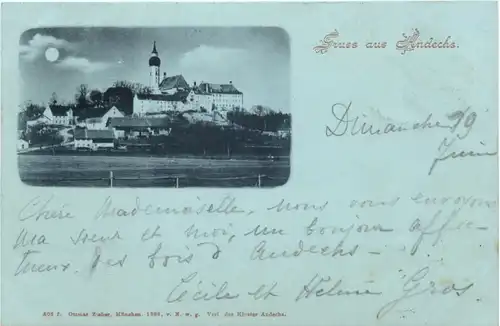 Gruss aus Andechs.
Dimanche 19
Juin
Chère Mademoiselle, nous vous envoyons
Ma soeur et moi, un bonjour affec-
tueux des bois d'Andechs -
Cécile et Hélène Gros.
Ottmar Zieher, München. 1898. Verl. des Kloster Andechs.